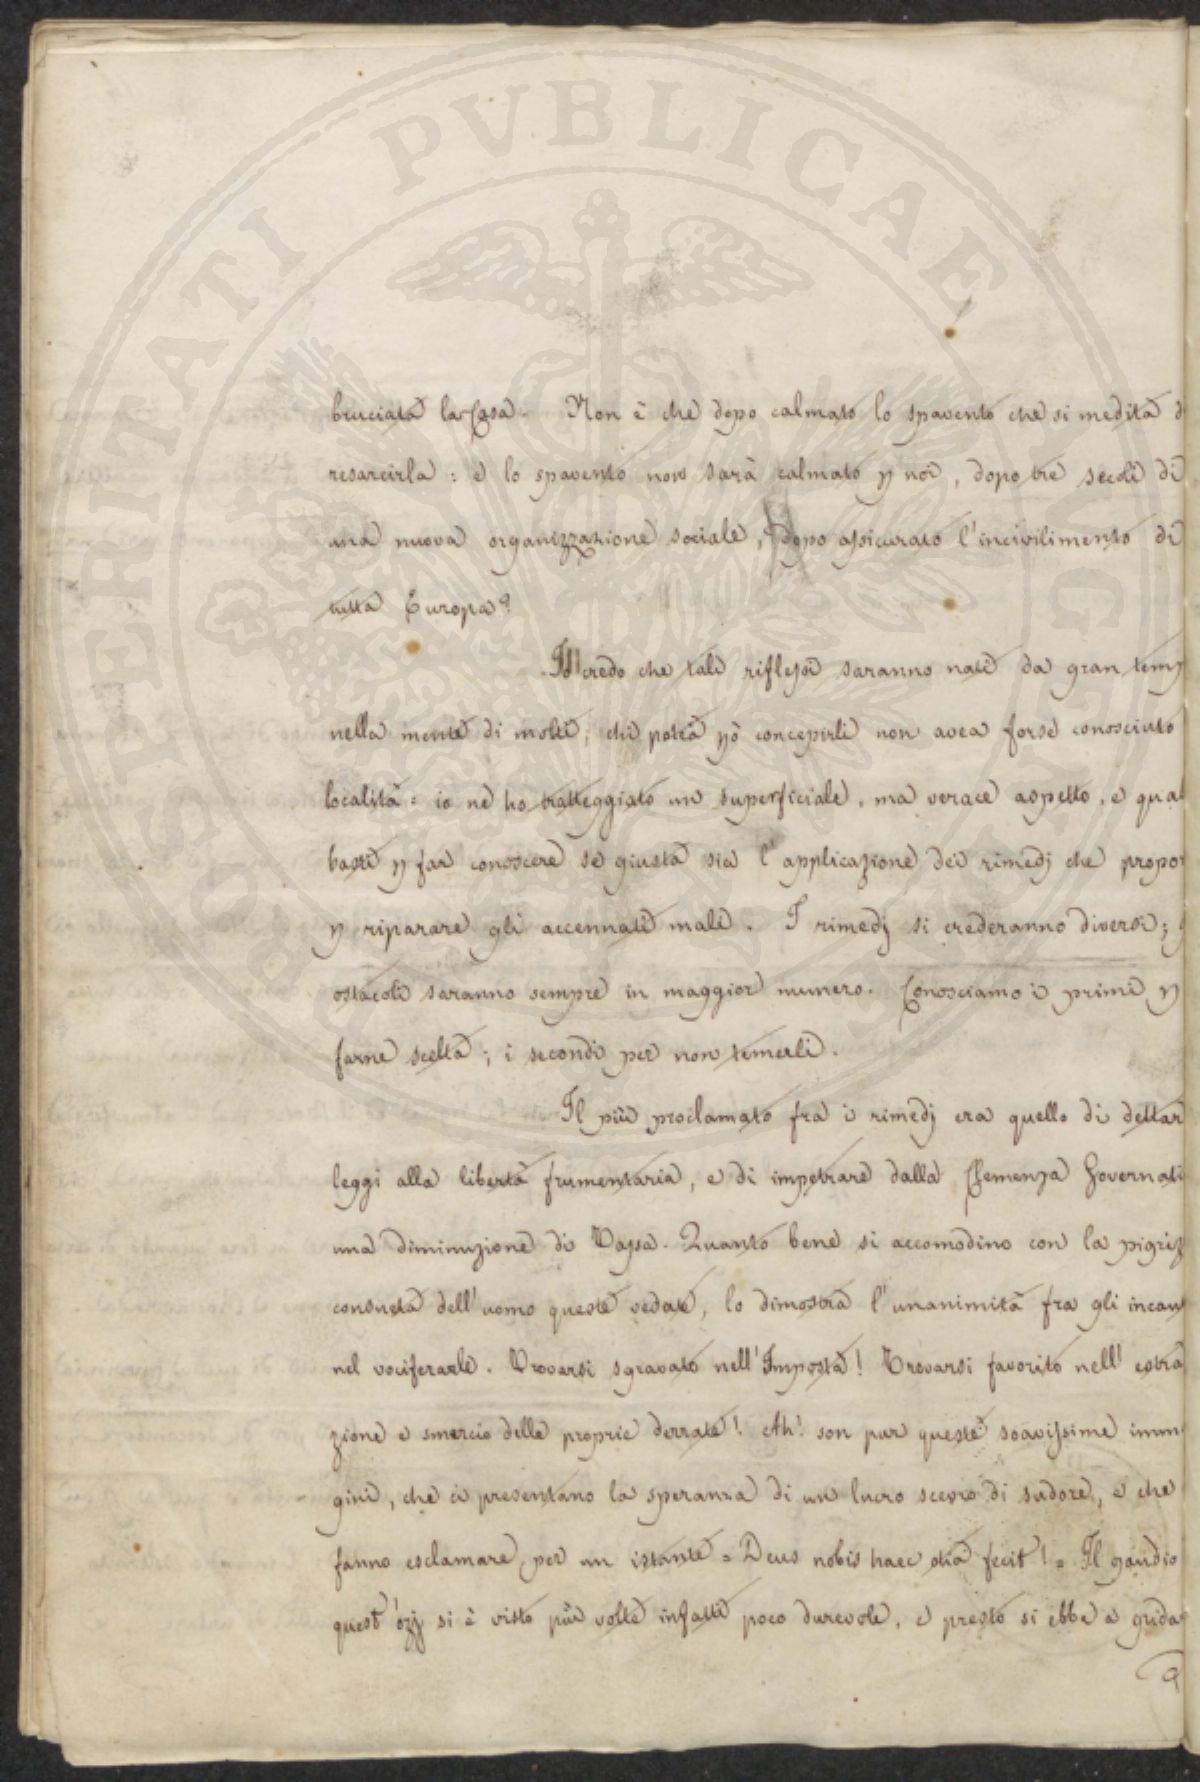 PROSPERITATI PVBLICAE AVGENDAE
bruciata la Casa. Non è che dopo calmato lo spavento che si medita d
resarcirla: e lo spavento non sarà calmato p noi, dopo tre secoli di
una nuova organizzazione sociale, dopo assicurato l'incivilimento di
tutta Europa?
Io credo che tali riflessi saranno nati da gran temp
nella mente di molti; chi potea pò concepirli non avea forse conosciuto
località: io nè ho tratteggiato un superficiale, ma verace aspetto, e qual
basti p far conoscere se giusta sia l'applicazione dei rimedj che propo
p riparare gli accennati mali. I rimedj si crederanno diversi;
ostacoli saranno sempre in maggior numero. Conosciamo i primi p
farne scelta; i secondi per non temerli.
Il più proclamato fra i rimedj era quello di dettar
leggi alla libertà frumentaria, e di impetrare dalla Clemenza Governati
una diminuzione di Tassa. Quanto bene si accomodino con la pigriz
consueta dell'uomo queste vedute, lo dimostra l'unanimità fra gli incau
nel vociferarle. Trovarsi sgravato nell'Imposta! Trovarsi favorito nell'estra
zione e smercio delle proprie derrate! Ah! son pur queste soavissime imm
gini, che ci presentano la speranza di un lucro scevro di sudore, e che
fanno esclamare per un istante = Deus nobis haec otia fecit! = Il gaudio
quest'ozj si è visto più volte infatti poco durevole, e presto si ebbe a grida
a